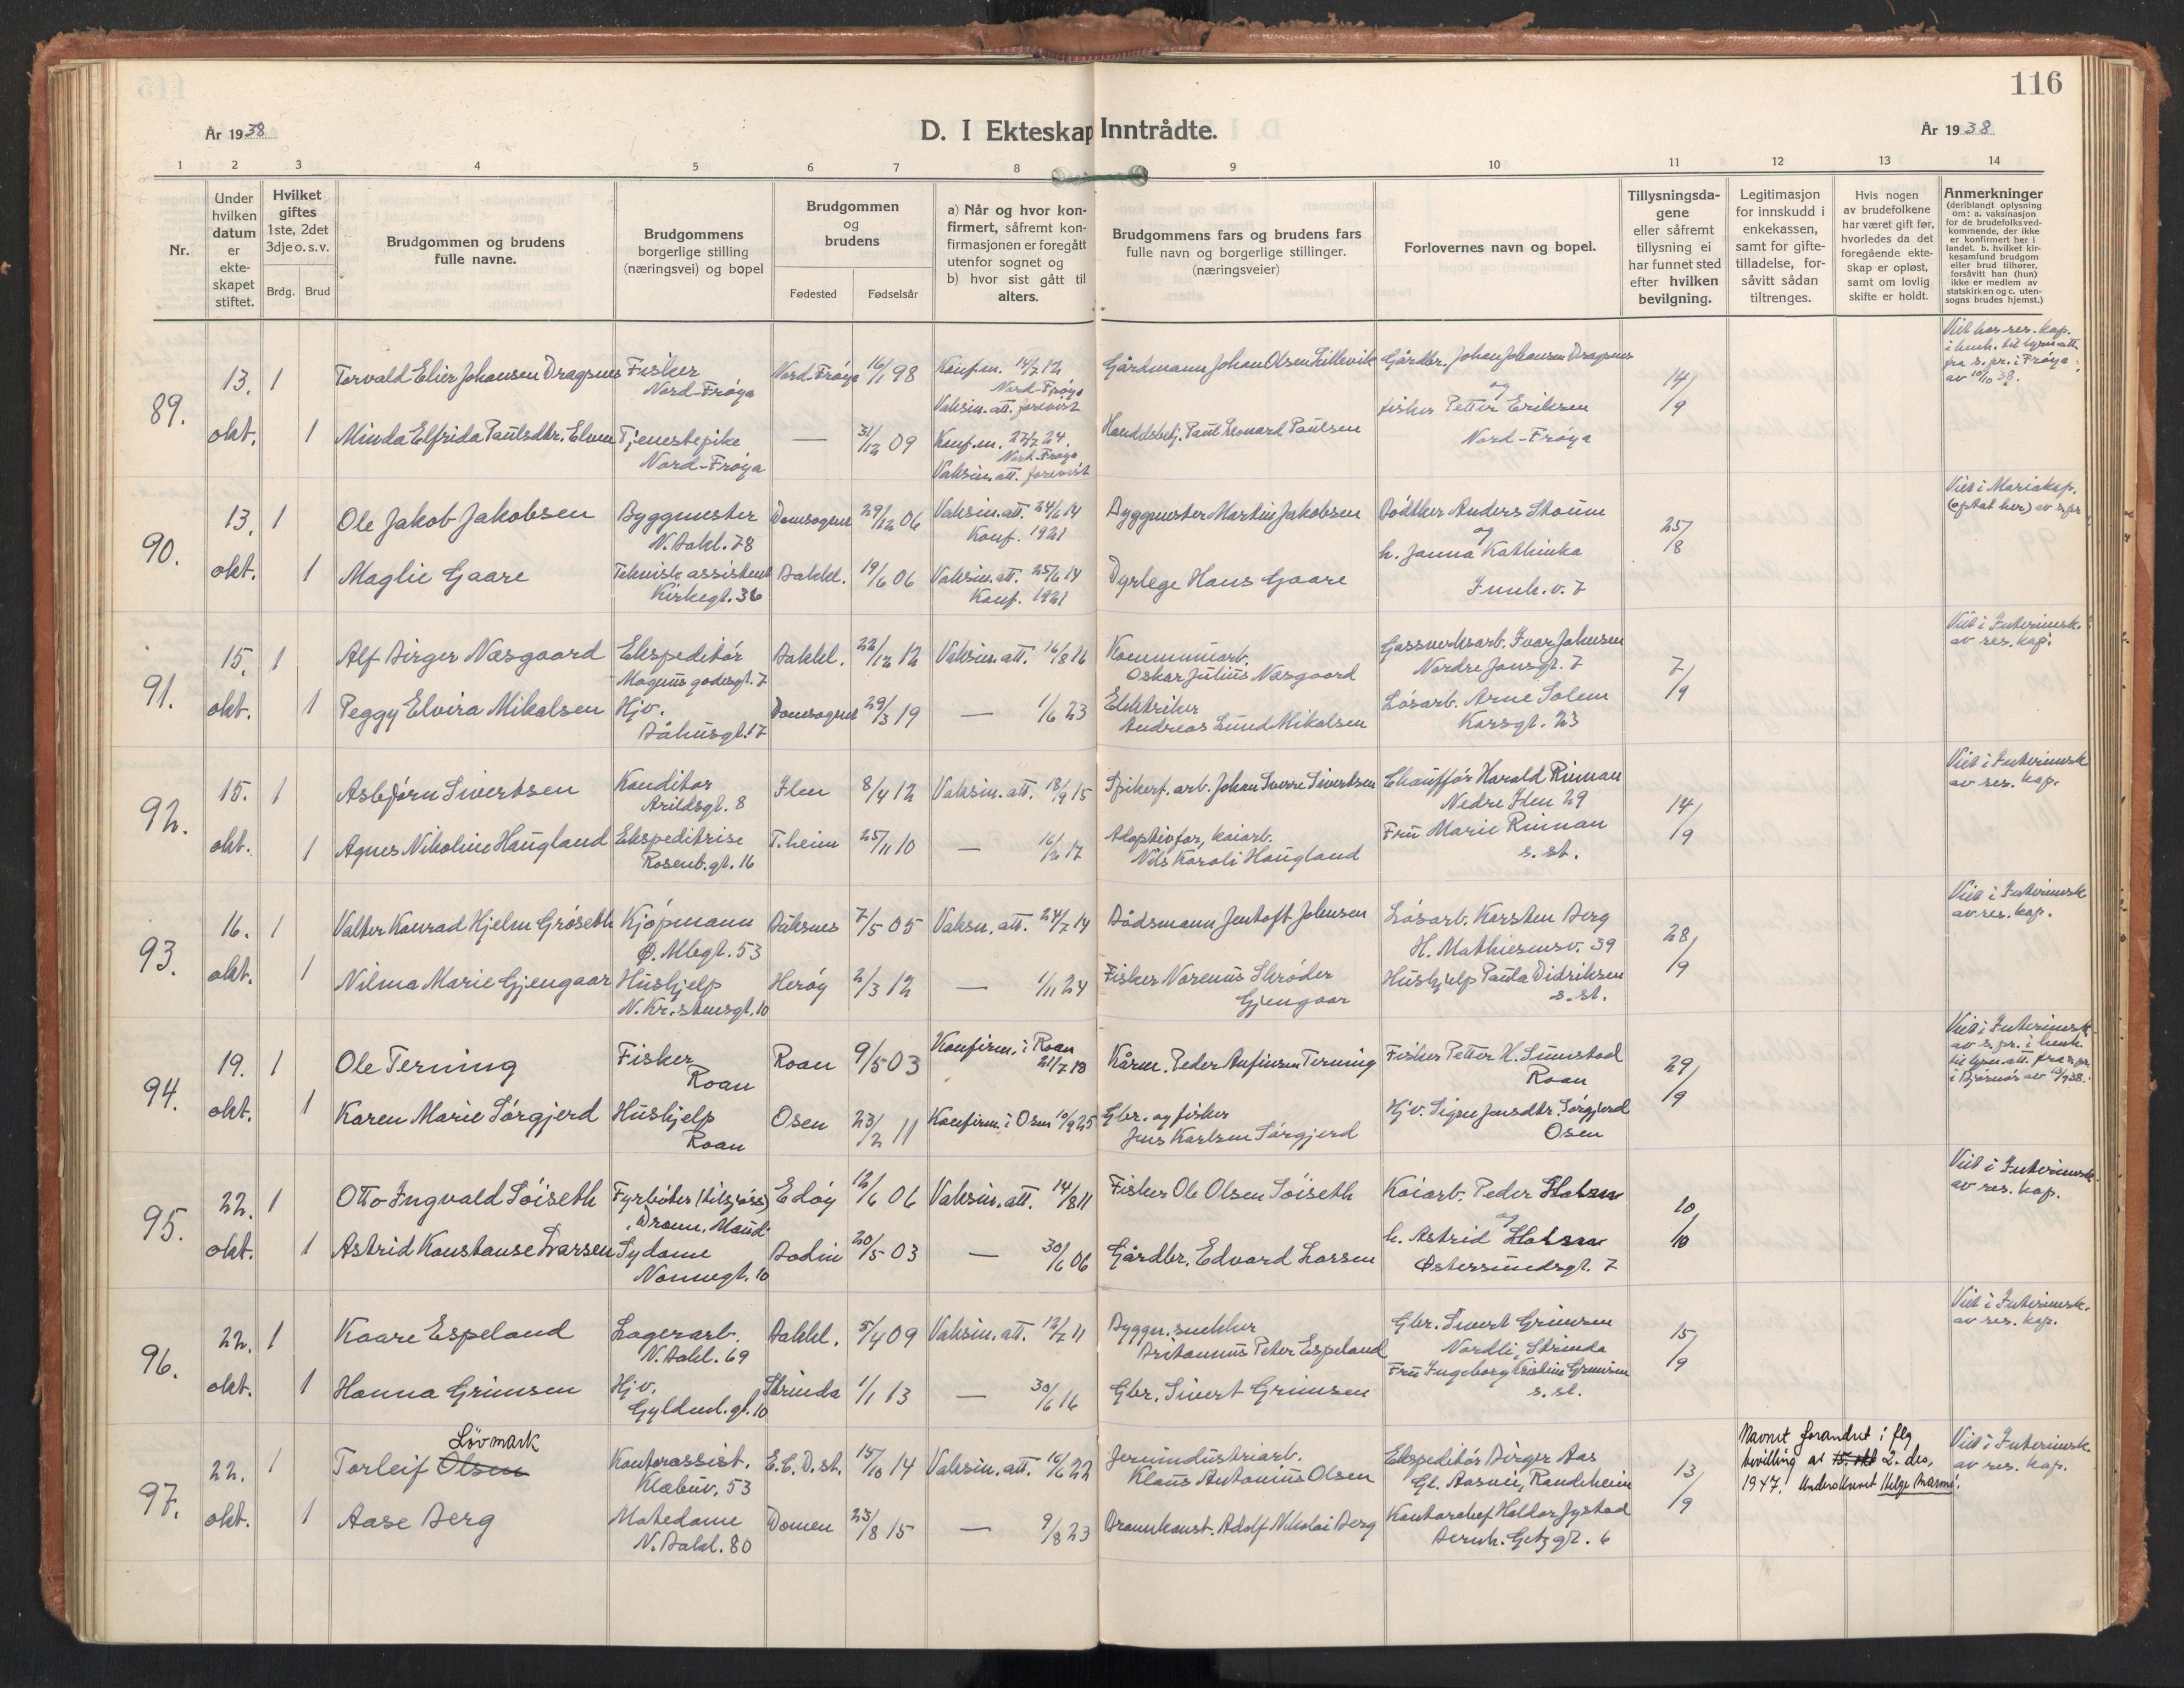 116
År 1938
D. I Ekteskap Inntrådte.
År 1938
1 2 3 4 5 6 7 8 9 10 11 12 13 14
Nr.
Under hvilken datum er ekteskapet stiftet.
Hvilket giftes 1ste, 2det 3dje o.s.v.
Brdg. Brud
Brudgommen og brudens fulle navne.
Brudgommens borgerlige stilling (næringsvei) og bopel
Brudgommen og brudens
Fødested Fødselsår
a) Når og hvor konfirmert, såfremt konfirmasjonen er foregått utenfor sognet og b) hvor sist gått til alters.
Brudgommens fars og brudens fars fulle navn og borgerlige stillinger. (næringsveier)
Forlovernes navn og bopel.
Tillysningsdagene eller såfremt tillysning ei har funnet sted efter hvilken bevilgning.
Legitimasjon for innskudd i enkekassen, samt for giftetilladelse, forsåvitt sådan tiltrenges.
Hvis nogen av brudefolkene har været gift før, hvorledes da det foregående ekteskap er opløst, samt om lovlig skifte er holdt.
Anmerkninger (deriblandt oplysning om: a. vaksinasjon for de brudefolks vedkommende, der ikke er konfirmert her i landet. b. hvilket kirkesamfund brudgom eller brud tilhører, forsåvitt han (hun) ikke er medlem av statskirken og c. utensogns brudes hjemst.)
89. 13. okt.
1 Torvald Elier Johansen Dragsnes Fisker Nord-Frøya Nord-Frøya 16/1 98 Konf.m. 14/7 12 Nord-Frøya Vaksin.att. forevist Gårdmann Johan Olsen Lillevik Gårdbr. Johan Johansen Dragsnes og 14/9
1 Minda Elfrida Paulsdtr. Elven Tjenestepike Nord-Frøya — 31/12 09 Konf.m. 27/7 24 Nord-Frøya Vaksin.att. forevist Handelsbetj. Paul Leonard Paulsen fisker Petter Eriksen Nord-Frøya
Viet hos res. kap. i henh. til lysn.att. fra s.pr. i Frøya av 10/10 38.
90. 13. okt.
1 Ole Jakob Jakobsen Byggmester N. Bakl. 78 Domsognet 29/12 06 Vaksin.att. 24/6 14 Konf. 1921 Byggmester Martin Jakobsen Bødker Anders Stoum og 25/8
1 Maglie Gaare Teknisk assistent Kirkegt. 36 Bakkl. 19/6 06 Vaksin.att. 25/6 14 Konf. 1921 Dyrlege Hans Gaare h. Janna Kathinka Innh.v. 7
Viet i Mariakap. (optat her) av s.pr.
91. 15. okt.
1 Alf Birger Næsgaard Ekspeditør Magnus godesgt. 7 Bakkl. 22/12 12 Vaksin.att. 16/8 16 Kommunearb. Oskar Julius Næsgaard Gassverksarb. Ivar Johnsen Nordre Jonsgt. 7 7/9
1 Peggy Elvira Mikalsen Hjv. Båhusgt. 17 Domsognet 29/3 19 — 1/6 23 Elektriker Andreas Lund Mikalsen Løsarb. Arne Solem Korsgt. 23
Viet i Interimsk. av res. kap.
92. 15. okt.
1 Asbjørn Sivertsen Konditor Arildsgt. 8 Ilen 8/4 12 Vaksin.att. 18/9 15 Spikerf.arb. Johan Sverre Sivertsen Chauffør Harald Rinnan Nedre Ilen 29 14/9
1 Agnes Nikoline Haugland Ekspeditrise Rosenb.gt. 16 T.heim 25/11 10 — 16/6 17 Adoptivfar, kaiarb. Nils Karoli Haugland Fru Marie Rinnan s.st.
Viet i Interimsk av res. kap.
93. 16. okt.
1 Valter Konrad Hjelm Grøseth Kjøpmann Ø. Møllegt. 53 Buksnes 7/5 05 Vaksn.att. 24/7 14 Bådsmann Jentoft Johnsen Løsarb. Karsten Berg H. Mathiesensv. 39 28/9
1 Nilma Marie Gjengaar Hushjelp N. Kr.stensgt. 10 Herøy 2/3 12 — 1/11 24 Fisker Norenus Skrøder Gjengaar Hushjelp Paula Didriksen s.st.
Viet i Interimsk av res. kap.
94. 19. okt.
1 Ole Terning Fisker Roan Roan 9/5 03 Konfirm. i Roan 21/7 18 Kårm. Peder Anfinsen Terning Fisker Petter H. Sumstad Roan 29/9
1 Karen Marie Sørgjerd Hushjelp Roan Osen 23/2 11 Konfirm. i Osen 10/9 25 Gbr. og fisker Jens Karlsen Sørgjerd Hjv. Signe Jensdtr. Sørgjerd Osen
Viet i Interimsk. av s.pr. i henh. til lysn.att. fra s.pr. i Bjørnør av
95. 22. okt.
1 Otto Ingvald Søiseth Fyrbøter (tilsjøss) Dronn. Maud Edøy 12/6 06 Vaksin.att. 14/8 11 Fisker Ole Olsen Søiseth Kaiarb. Peder Halsen og 10/10
1 Astrid Konstanse Larsen Sydame Nonnegt. 10 Bodin 20/5 03 — 30/6 06 Gårdbr. Edvard Larsen h. Astrid Halsen Østersundsgt. 7
Viet i Interimsk. av res. kap.
96. 22. okt.
1 Kaare Espeland Lagerarb. N. Bakl. 69 Bakkl. 5/4 09 Vaksin.att. 12/7 11 Byggn.snekker Britannus Peter Espeland Gbr. Sivert Grimsen Nardli, Strinda 15/9
1 Hanna Grimsen Hjv. Gyldenl.gt. 10 Strinda 1/1 13 — 30/6 16 Gbr. Sivert Grimsen Fru Ingeborg Kristine Grimsen s.st.
Viet i Interimsk. av res. kap.
97. 22. okt.
Løvmark
1 Torleif Olsen Kontorassist. Klæbuv. 53 E.C.D.st. 15/10 14 Vaksin.att. 16/6 22 Jernindustriarb. Klaus Antonius Olsen Ekspeditør Birger Aas Gl. Aasvei, Ranheim 13/9
1 Aase Berg Matedame N. Bakl. 80 Domen 23/8 15 — 9/8 23 Dramkonst. Adolf Nikolai Berg Kontorchef Haldor Jystad Bernh. Getz gt. 6
Navnet forandret i flg bevilling av 15. okt 2. des. 1947. Underskrevet Helge
Viet i Interimsk. av res. kap.